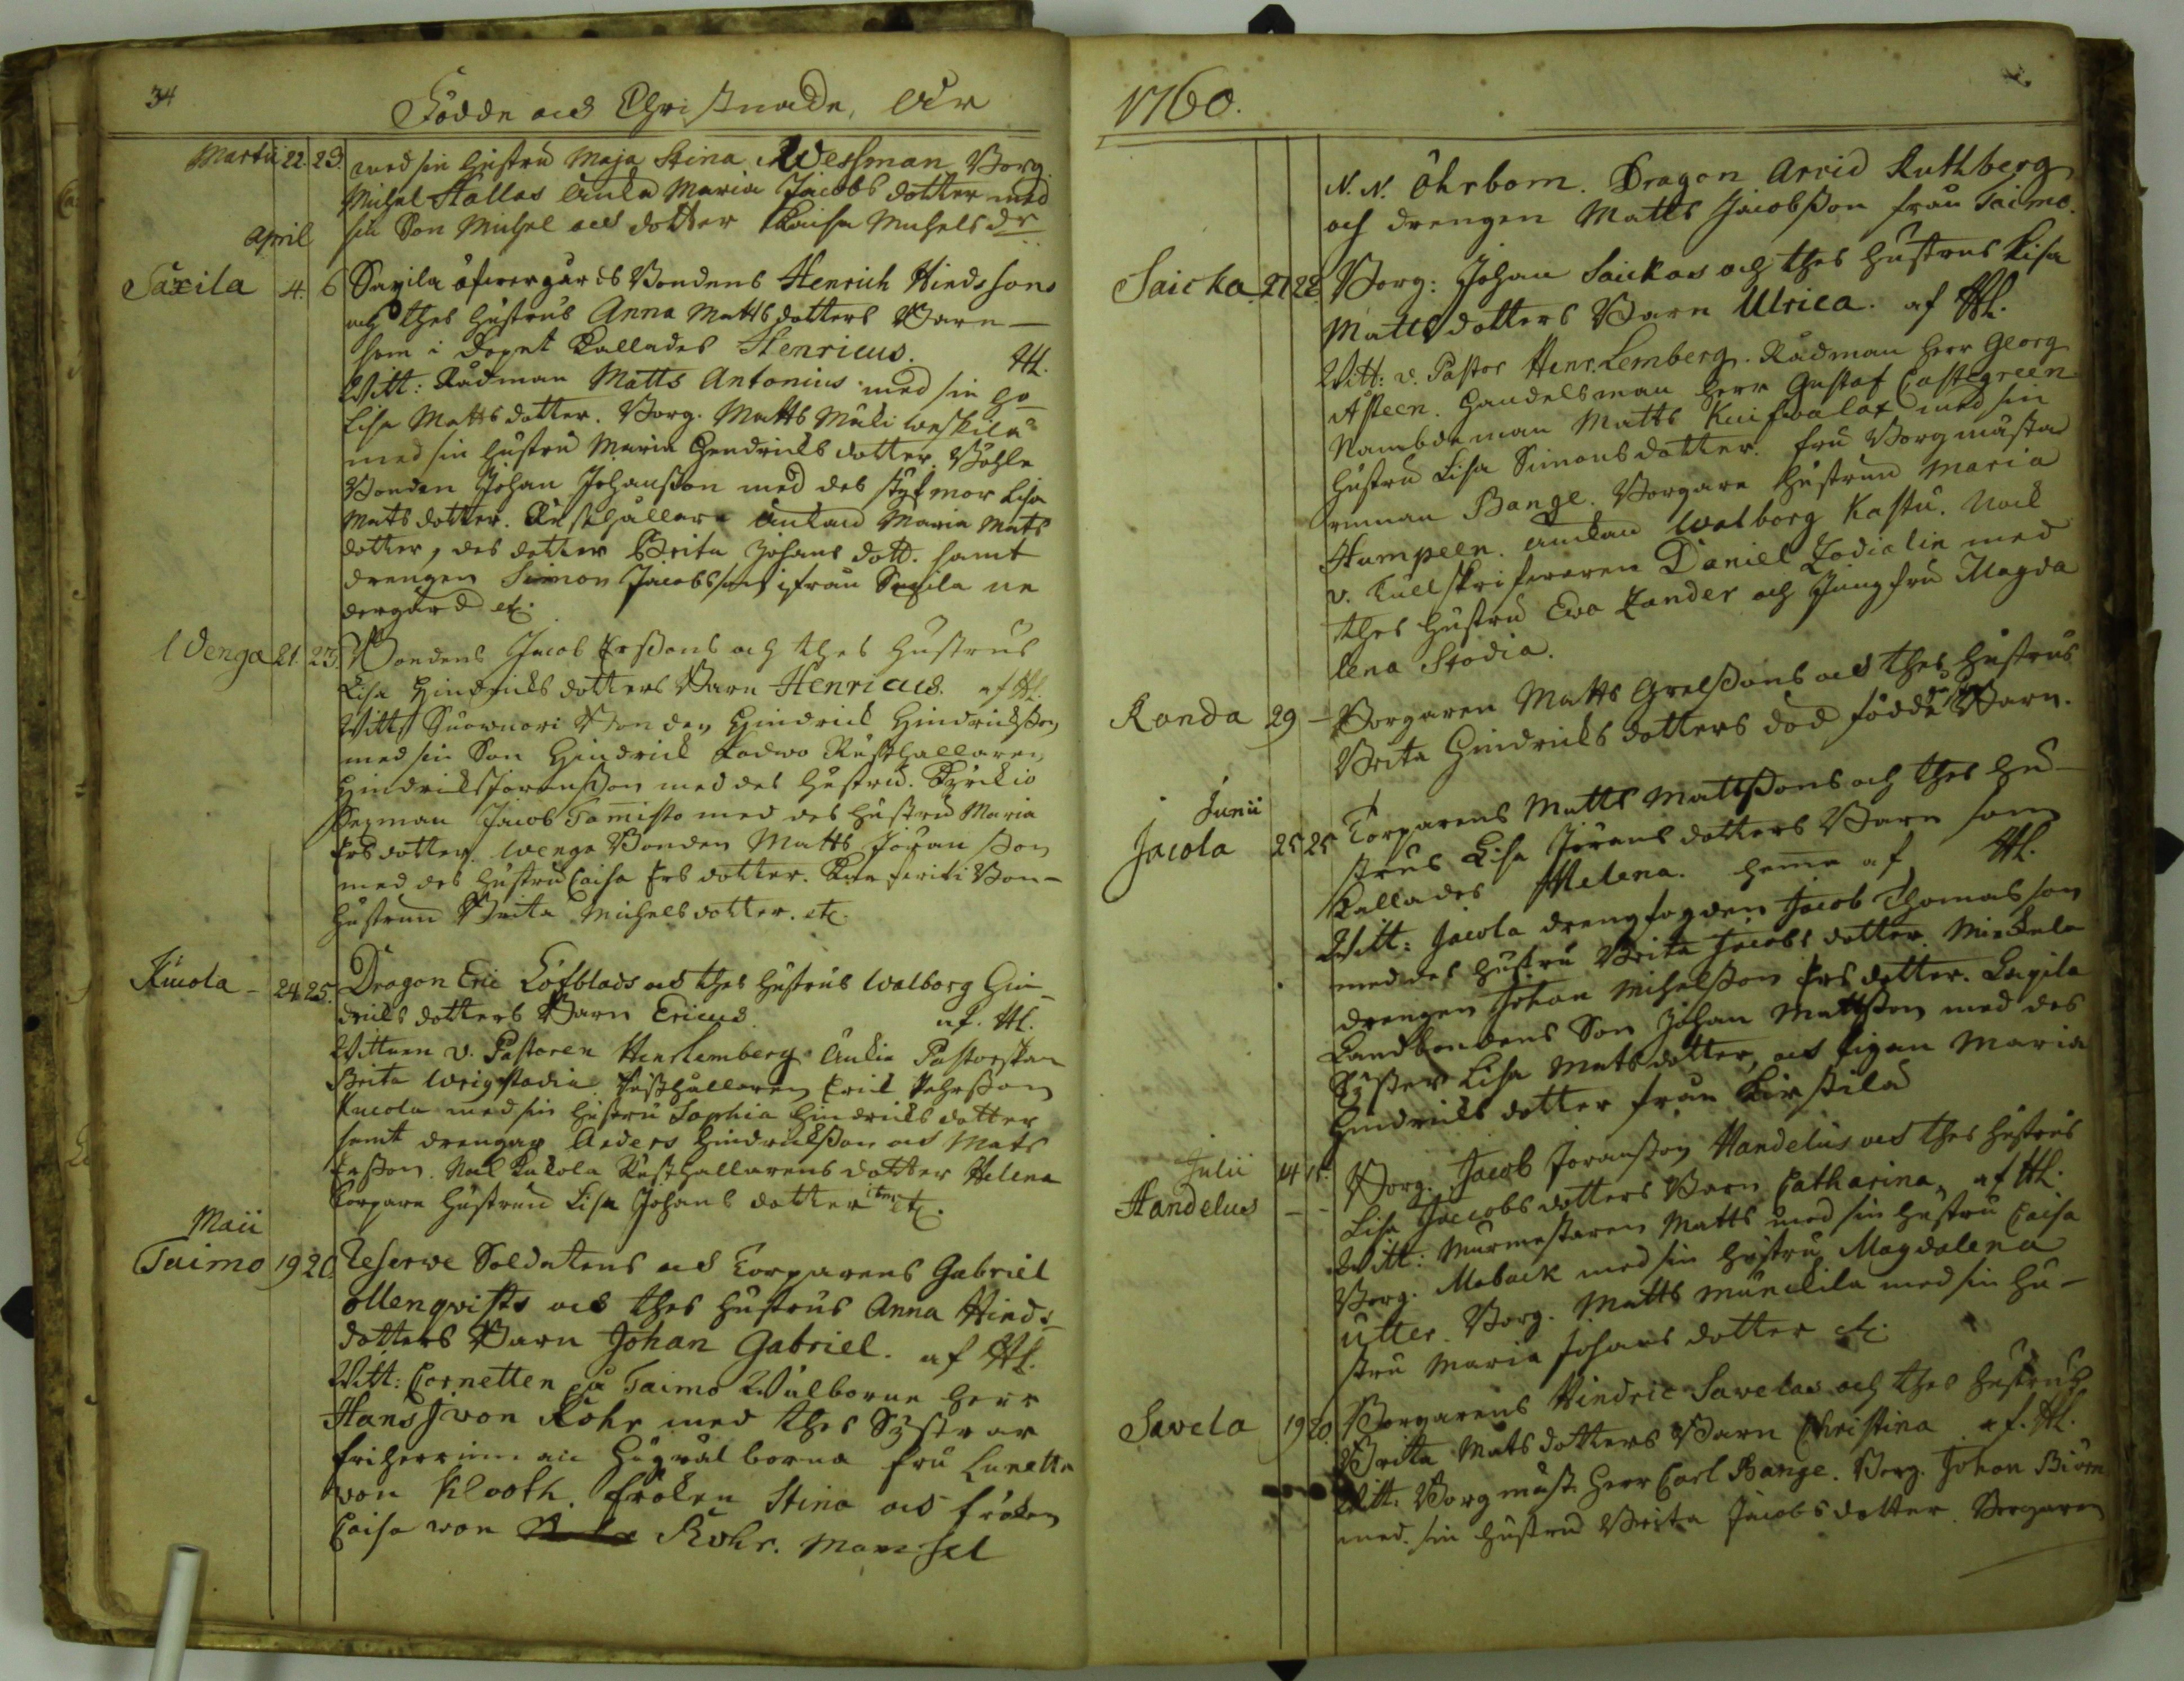 34
Födde och Christnade, Åhr
Martii 22. 23. med sin hustru Maja Stina Wessman Borg.
Michel Hallas änka Maria Jacobs dotter med
sin Son Michel och dotter Caisa Michels dr
April
Saxila 4. 6 Saxila öfvergårds Bondens Henrich Hindssons
och thes hustrus Anna Mattsdotters Barn
som i Dopet Kallades Henricus. HL.
Witt: Rådman Matts Antonius med sin h
Lisa Matts dotter. Borg. Matts
med sin hustru Maria Hendrichs dotter
Bonden Johan Johansson med des styfmor Lisa
Mats dotter. Rusthållare änkan Maria Mats
dotter, des dotter Brita Johans dott. samt
drengen Simon Jacobsson ifrån Saxila ne
dergård etc.
Wenga 21. 23. Bondens Jacob Erssons och thes hustrus
Lisa Hindrichs dotters Barn Henricus. af HL.
Witt: Bonden Hindrich Hindrichsson
med sin Son Hindrich Rusthållaren
Hindrich Joransson med des hustru. Kyrkio
Jacob Tamisto med des hustru Maria
Ers dotter. Wenga Bonden Matts Jöran son
med des hustru Caisa Ers dotter. Bon-
hustrun Brita Michelsdotter. etc.
Kuola - 24 25. Dragon Eric Löfblads och thes hustrus Walborg Hin-
drichs dotters Barn Ericus. af. HL.
Wittnen v. Pastoren Henr Lemberg. änkia Pastorskan
Brita Wrigstadia Rusthållaren Erich Pehrsson
Kucola med sin hustru Sophia Hindrichs dotter
samt drengar Anders Hindrichsson och Mats
Ersson. Rusthållarens dotter Helena
Torpare hustrun Lisa Johans dotter etc.
Maii
Taimo 19 20. Reserve Soldatens och Torparens Gabriel
Ollenqvists och thes hustrus Anna Hinds-
dotters Barn Johan Gabriel. af HL.
Witt: Cornetten på Taimo Wälborne herr
Hans J von Rohr med thes Systrar
friherrinnan Högvälborna fru Lunetta
von Klooth. fröken Stina och fröken
Caisa von Rohr. Mamsel
1760.
N. N. Öhrbom. Dragon Arvid Ruthberg
och drengen Matts Jacobsson från Taimo.
Saicka 27 28. Borg: Johan Saickas och thes hustrus Lisa
Mattsdotters Barn Ulrica. af HL.
Witt: v. Pastor Henr. Lemberg. Rådman herr Georg
Asteen. Handelsman herr Gustaf Castegreen.
Nambdeman Matts med sin
hustru Lisa Simonsdotter. fru Borgmästa
rinnan Bange. Borgare hustrun Maria
Humpeen. änkan Walborg Kastu.
v. Tullskrifveren Daniel Zodialin med
thes hustru Ewa Zander och Jungfru Magda
lena Stodia.
Randa 29 - Borgaren Matts Grelssons och thes hustrus
Brita Hindrichs dotters död födda Barn.
Junii
Jacola 25 25 Torparens Matts Mattssons och thes hu-
strus Lisa Jörans dotters Barn som
Kallades Helena. hemma af HL.
Witt: Jacola drengfogden Jacob Thomasson
med des hustru Brita Jacobs dotter.
drengen Johan Michelsson Ers dotter.
Landbondens Son Johan Mattsson med des
Syster Lisa Matsdotter, och pigan Maria
Hindrichs dotter från Kirstilä
Julii 14 15. Borg. Jacob Joransson Handelus och thes hustrus
Handelus - - Lisa Jacobs dotters Barn Catharina. af HL.
Witt: Murmestaren Matts med sin hustru Caisa
Borg. Maback med sin hustru Magdalena
Utter. Borg. Matts Munckila med sin hu-
stru Maria Johans dotter etc.
Savela 19 20. Borgarens Hindric Savelas och thes hustrus
Brita Matsdotters Barn Christina af. HL.
Witt. Borgmäst. herr Carl Bange. Borg. Johan Biörn
med sin hustru Brita Jacobsdotter. Borgaren